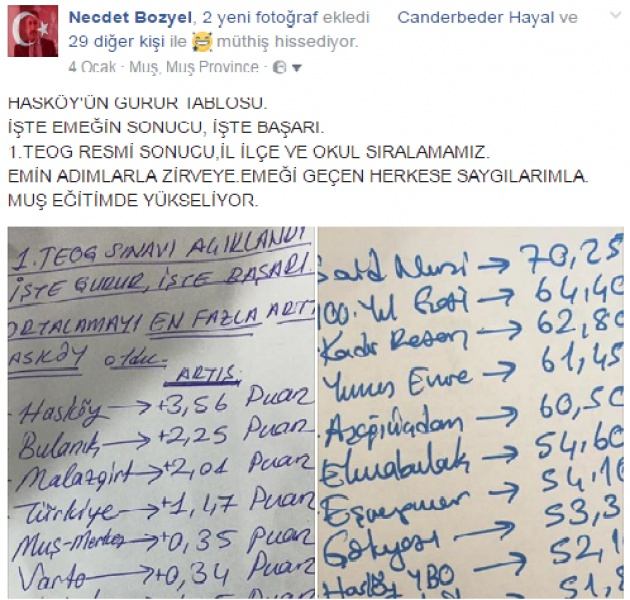 Necdet Bozyel, 2 yeni fotoğraf ekledi Canderbeder Hayal ve
29 diğer kişi ile müthiş hissediyor.
4 Ocak · Muş, Muş Province ·
HASKÖY'ÜN GURUR TABLOSU.
İŞTE EMEĞİN SONUCU, İŞTE BAŞARI.
1.TEOG RESMİ SONUCU,İL İLÇE VE OKUL SIRALAMAMIZ.
EMİN ADIMLARLA ZİRVEYE.EMEĞİ GEÇEN HERKESE SAYGILARIMLA.
MUŞ EĞİTİMDE YÜKSELİYOR.
1. TEOG SINAVI AÇIKLANDI
İŞTE GURUR, İŞTE BAŞARI.
ORTALAMAYI EN FAZLA ARTI
ASKÖY oldu.
ARTIŞ
Hasköy → +3,56 Puan
Bulanık → +2,25 Puan
Malazgirt → +2,01 Puan
Türkiye → +1,47 Puan
Muş-Merkez → +0,35 Puan
Varto → +0,34 Puan
Said Nursi → 70,25
100. Yıl → 64,40
Kadir → 62,80
Yunus Emre → 61,45
→ 60,50
Elmabulak → 54,60
→ 54,10
Gökyazı → 53,3
Hasköy YBO → 52,1
51,8